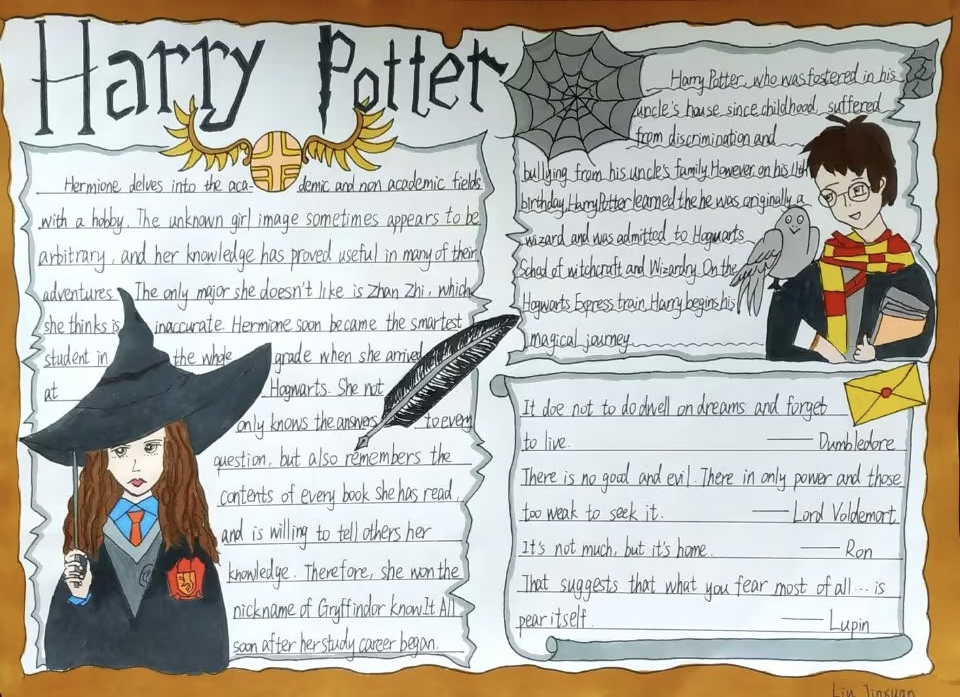 Harry Potter
Hermione delves into the aca- demic and non academic fields
with a hobby. The unknown girl image sometimes appears to be
arbitrary, and her knowledge has proved useful in many of their
adventures. The only major she doesn't like is Zhan Zhi, which
she thinks is inaccurate. Hermione soon became the smartest
student in the whole grade when she arrived
at Hogwarts. She not
only knows the answers to every
question, but also remembers the
contents of every book she has read,
and is willing to tell others her
knowledge. Therefore, she won the
nickname of Gryffindor know It All
soon after her study career began.
Harry Potter, who was fostered in his
uncle's house since childhood, suffered
from discrimination and
bullying from his uncle's family. However on his 11th
birthday, Harry Potter learned the he was originally a
wizard and was admitted to Hogwarts
School of witchcraft and Wizardry. On the
Hogwarts Express train, Harry begins his
magical journey.
It doe not to do dwell on dreams and forget
to live. —— Dumbledore
There is no goad and evil. There in only power and those
too weak to seek it. —— Lord Voldemort
It's not much, but it's home. —— Ron
That suggests that what you fear most of all... is
pear itself. —— Lupin
Liu Jinxuan